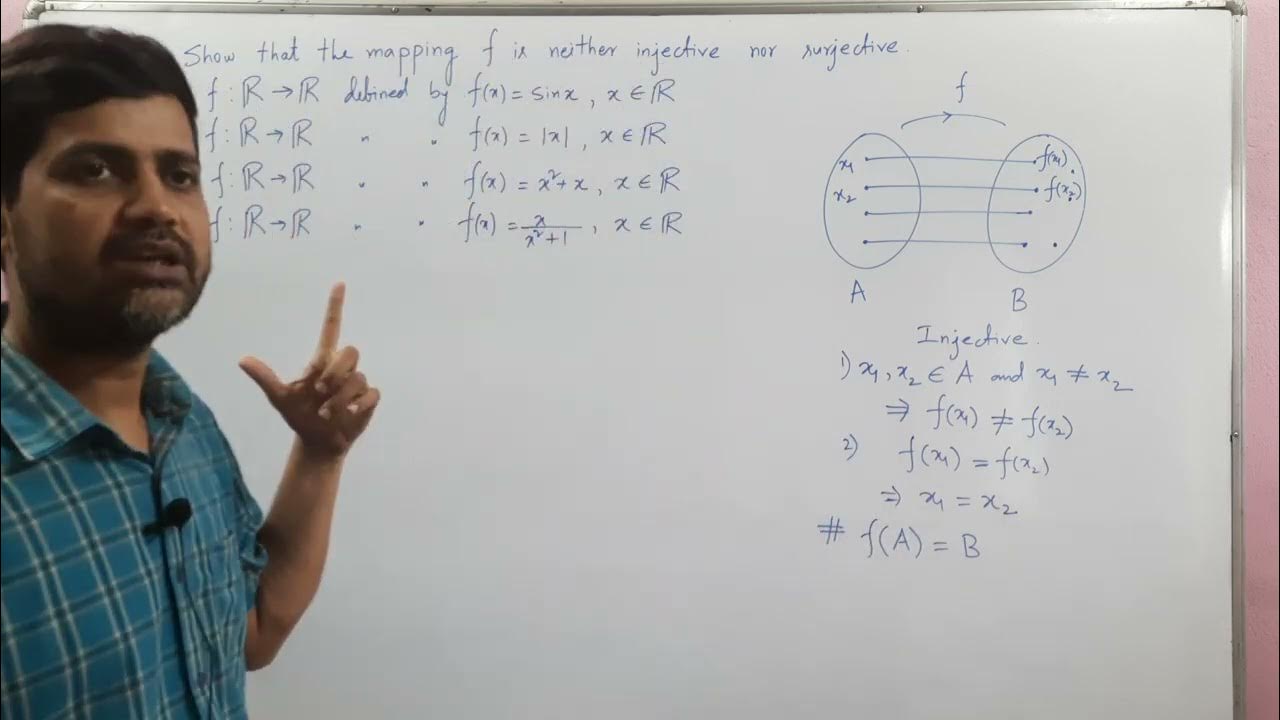 Show that the mapping f is neither injective nor surjective.
f : ℝ → ℝ debined by f(x) = sinx , x ∈ ℝ
f : ℝ → ℝ " " f(x) = |x| , x ∈ ℝ
f : ℝ → ℝ " " f(x) = x²+x , x ∈ ℝ
f : ℝ → ℝ " " f(x) = x/(x²+1) , x ∈ ℝ
f
x₁ f(x₁)
x₂ f(x₂)
A B
Injective.
1) x₁, x₂ ∈ A and x₁ ≠ x₂
⇒ f(x₁) ≠ f(x₂)
2) f(x₁) = f(x₂)
⇒ x₁ = x₂
# f(A) = B